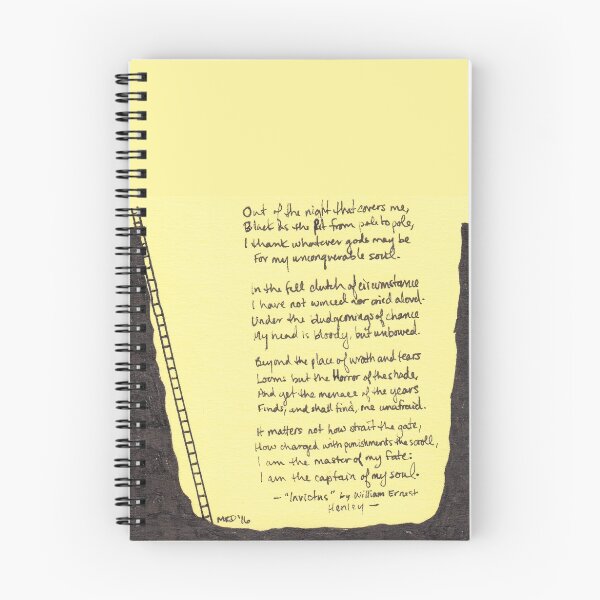 Out of the night that covers me,
Black as the pit from pole to pole,
I thank whatever gods may be
For my unconquerable soul.
In the fell clutch of circumstance
I have not winced nor cried aloud.
Under the bludgeonings of chance
My head is bloody, but unbowed.
Beyond the place of wrath and tears
Looms but the Horror of the shade,
And yet the menace of the years
Finds, and shall find, me unafraid.
It matters not how strait the gate,
How charged with punishments the scroll,
I am the master of my fate:
I am the captain of my soul.
— "Invictus" by William Ernest
Henley —
MKD '16